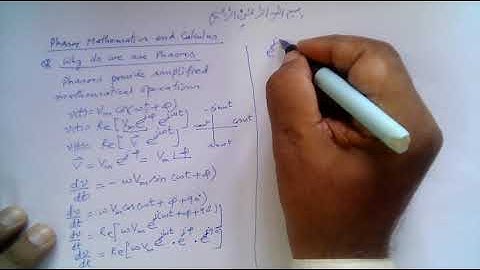 بسم الله الرحمن الرحيم
Phasor Mathematics and Calculus
Q Why do we use Phasors
Phasors provide simplified
mathematical operations
v(t) = Vm cos(ωt + φ)
v(t) = Re[Vm e^jφ e^jωt]
v(t) = Re[V⃗ e^jωt]
-sinωt
cosωt
sinωt
V⃗ = Vm e^jφ = Vm∠φ
dv/dt = -ωVm sin(ωt + φ)
dv/dt = ωVm cos(ωt + φ + 90°)
dv/dt = Re[ωVm e^j(ωt + φ + 90°)]
dv/dt = Re[ωVm e^jωt . e^jφ . e^j90°]